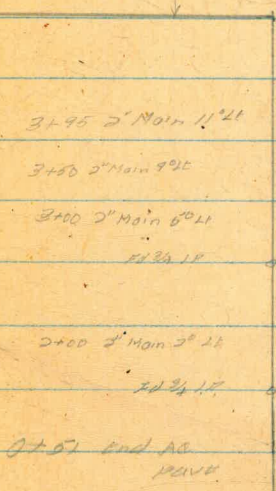 3+95 2" Main 11° Lt
3+50 2" Main 9° Lt
3+00 2" Main 6° Lt
Fd 3/4 I.P.
2+00 2" Main 2° Lt
Fd 3/4 I.P.
0+51 End AC
Pave